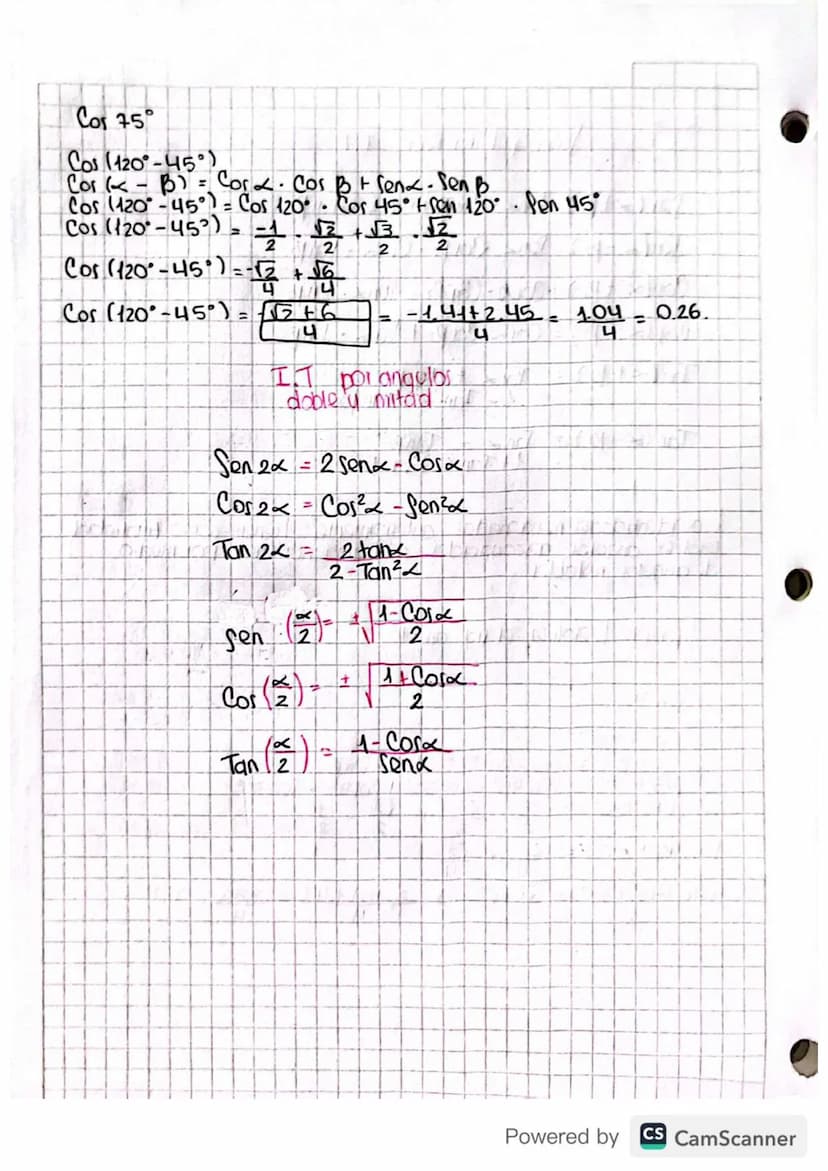 Cos 75°
Cos (120° - 45°)
Cos (α - β) = Cos α · Cos β + Sen α · Sen β
Cos (120° - 45°) = Cos 120° · Cos 45° + Sen 120° · Sen 45°
Cos (120° - 45°) = -1/2 · √2/2 + √3/2 · √2/2
Cos (120° - 45°) = -√2/4 + √6/4
Cos (120° - 45°) = √2 + 6/4 = -1.41 + 2.45/4 = 1.04/4 = 0.26.
I.T por angulos
doble y mitad
Sen 2α = 2 Sen α - Cos α
Cos 2α = Cos²α - Sen²α
Tan 2α = 2 tan α / 2 - Tan²α
Sen (α/2) = ±√(1 - Cos α / 2)
Cos (α/2) = ±√(1 + Cos α / 2)
Tan (α/2) = 1 - Cos α / Sen α
Powered by CS CamScanner